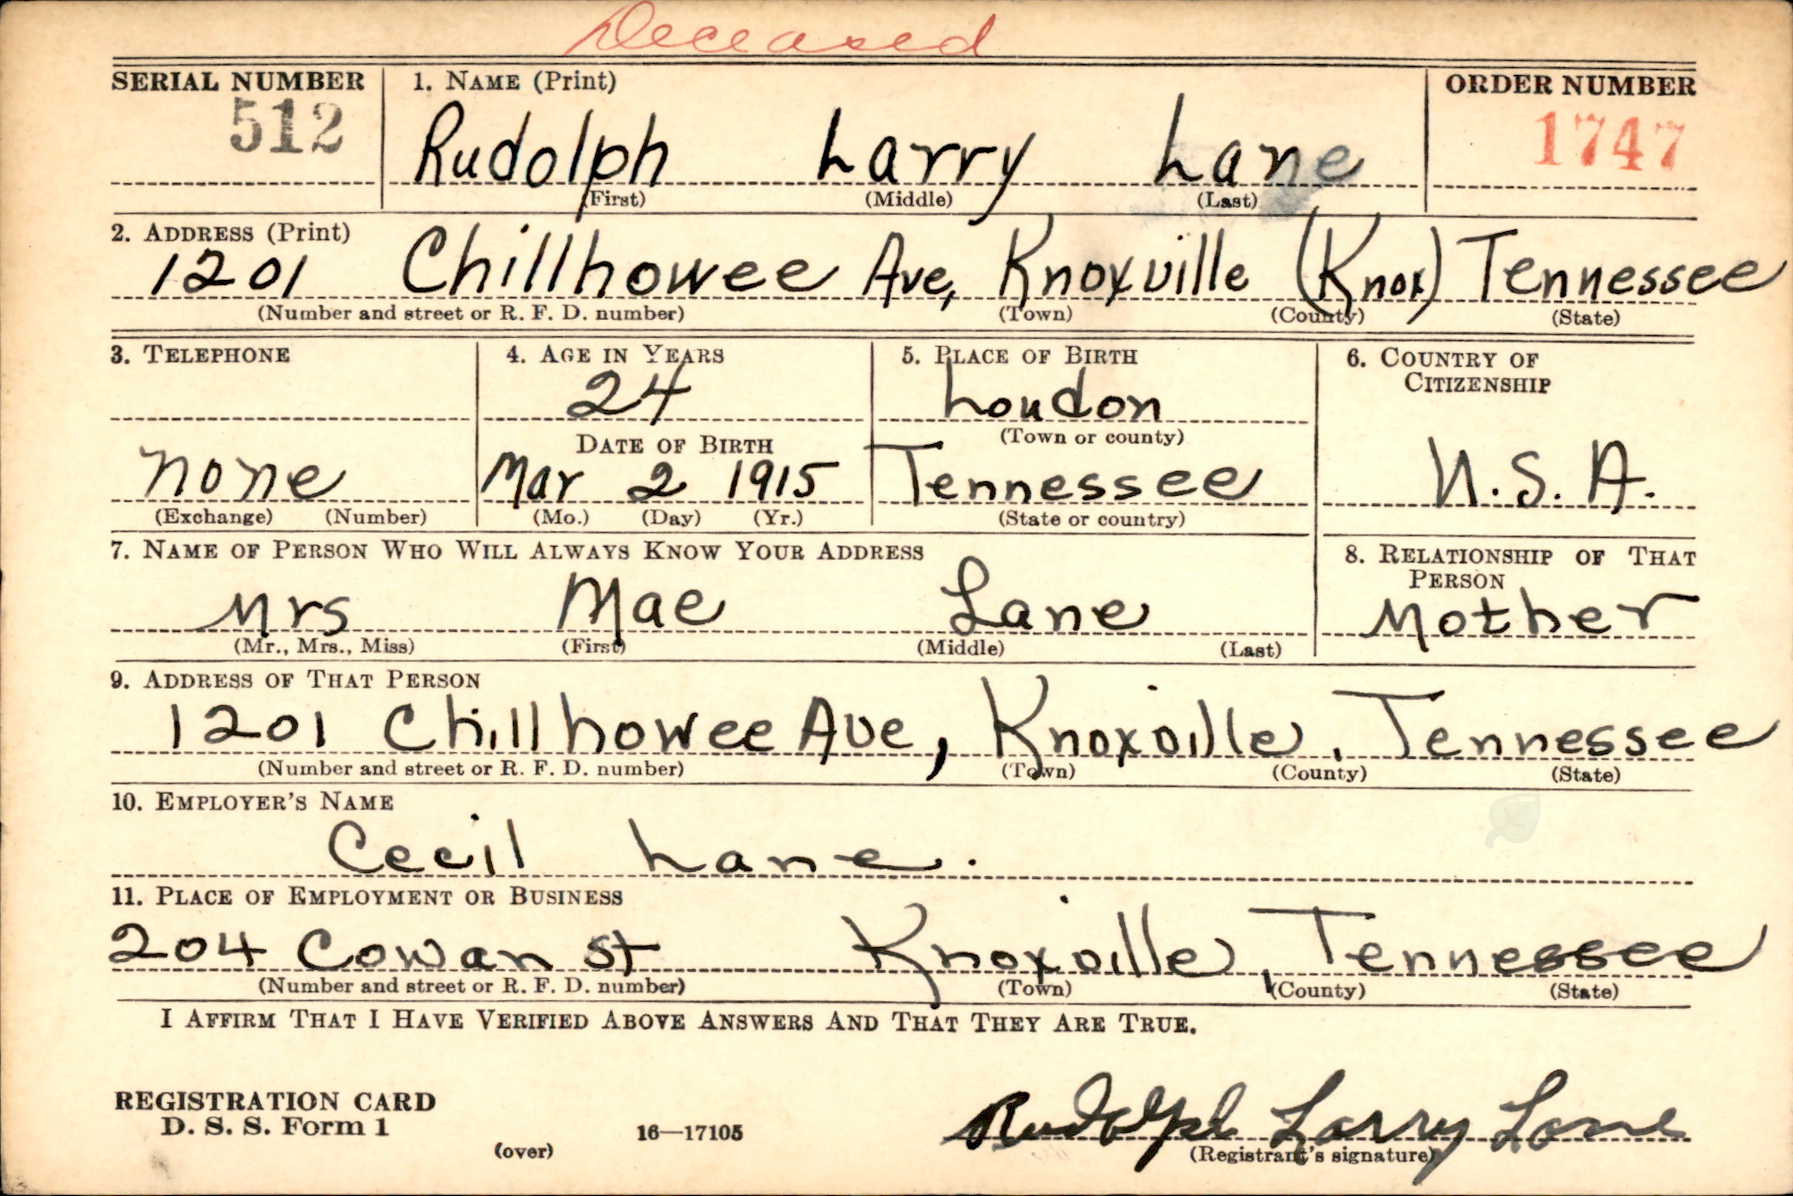 Deceased
SERIAL NUMBER 1. NAME (Print) ORDER NUMBER
512 Rudolph Larry Lane 1747
(First) (Middle) (Last)
2. ADDRESS (Print)
1201 Chillhowee Ave, Knoxville (Knox) Tennessee
(Number and street or R. F. D. number) (Town) (County) (State)
3. TELEPHONE 4. AGE IN YEARS 5. PLACE OF BIRTH 6. COUNTRY OF
CITIZENSHIP
24 Loudon
DATE OF BIRTH (Town or county)
none Mar 2 1915 Tennessee U.S.A.
(Exchange) (Number) (Mo.) (Day) (Yr.) (State or country)
7. NAME OF PERSON WHO WILL ALWAYS KNOW YOUR ADDRESS 8. RELATIONSHIP OF THAT
PERSON
Mrs Mae Lane Mother
(Mr., Mrs., Miss) (First) (Middle) (Last)
9. ADDRESS OF THAT PERSON
1201 Chillhowee Ave, Knoxville, Tennessee
(Number and street or R. F. D. number) (Town) (County) (State)
10. EMPLOYER'S NAME
Cecil Lane.
11. PLACE OF EMPLOYMENT OR BUSINESS
204 Cowan St Knoxville, Tennessee
(Number and street or R. F. D. number) (Town) (County) (State)
I AFFIRM THAT I HAVE VERIFIED ABOVE ANSWERS AND THAT THEY ARE TRUE.
REGISTRATION CARD
D. S. S. Form 1 16—17105 Rudolph Larry Lane
(over) (Registrant's signature)